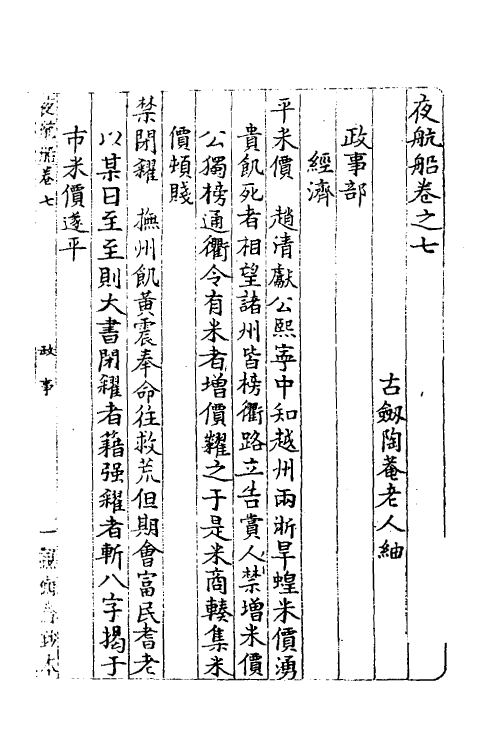 夜航船卷之七
古劔陶菴老人紬
政事部
經濟
平米價　趙清獻公熙寧中知越州兩浙旱蝗米價湧
貴飢死者相望諸州皆榜衢路立告賞人禁增米價
公獨榜通衢令有米者增價糶之于是米商輳集米
價頓賤
禁閉糴　撫州飢黃震奉命往救荒但期會富民耆老
以某日至至則大書閉糴者藉强糴者斬八字揭于
市米價遂平
夜航船卷七
政事
一